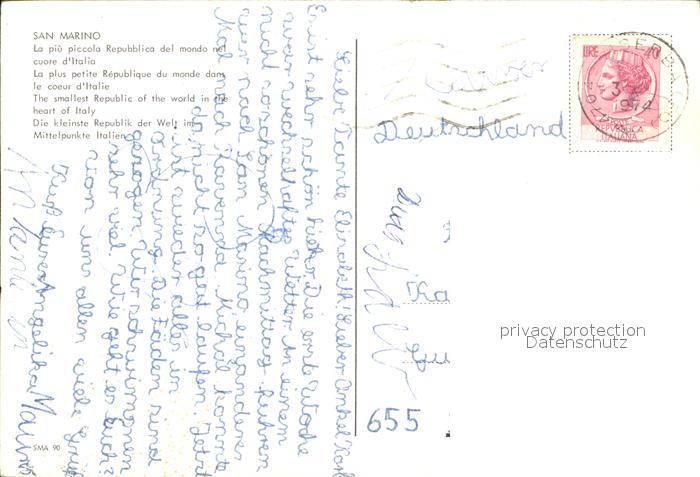 SAN MARINO
La più piccola Repubblica del mondo nel
cuore d'Italia
La plus petite République du monde dans
le coeur d'Italie
The smallest Republic of the world in the
heart of Italy
Die kleinste Republik der Welt im
Mittelpunkte Italien
Liebe Tannte Elisabeth, Lieber Onkel Karl
Es ist sehr schön hier. Die erste Woche
war wechselhaftes Wetter. An einem
nicht so schönen Nachmittag fuhren
wir nach San Marino ein anderes
Mal nach Ravenna. Michael konnte
da nicht so gut laufen. Jetzt
ist wieder alles in
Ordnung. Die Fäden sind
gezogen. Wir schwimmen
sehr viel. Wie geht es Euch?
Von uns allen viele Grüße
Kuß Eure Angelika
SMA 90
LIRE 40
3
1974
REPUBBLICA
ITALIANA
Deutschland
655
privacy protection
Datenschutz